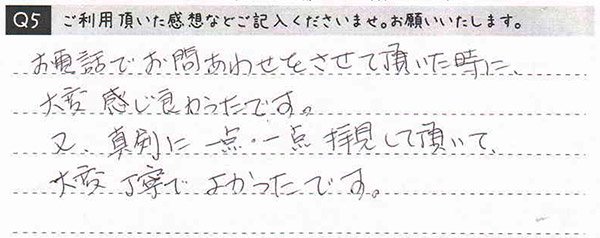 Q5 ご利用頂いた感想などご記入くださいませ。お願いいたします。
お電話でお問あわせをさせて頂いた時に、
大変感じ良かったです。
又、真剣に一点・一点拝見して頂いて、
大変丁寧でよかったです。